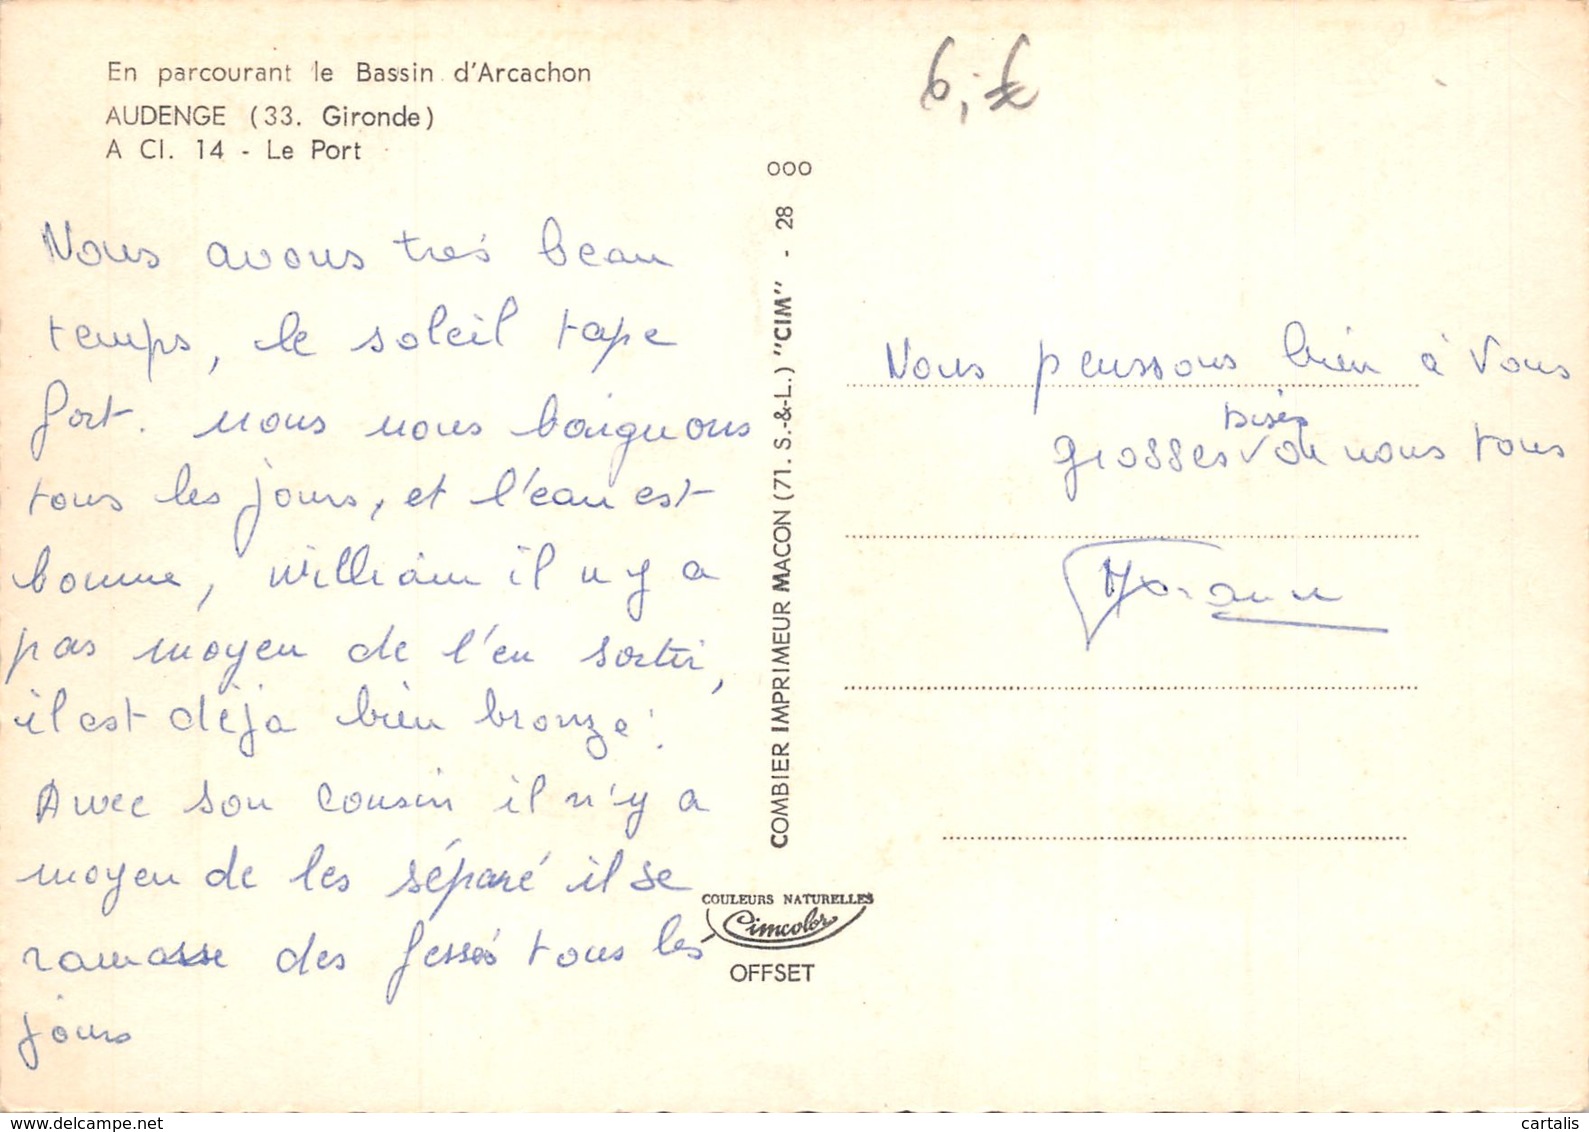 En parcourant le Bassin d'Arcachon
AUDENGE (33. Gironde)
A CI. 14 - Le Port
Nous avons très beau
temps, le soleil tape
fort. nous nous baignons
tous les jours, et l'eau est
bonne, William il n y a
pas moyen de l'en sortir,
il est déja bien bronze.
Avec son cousin il n'y a
moyen de les séparé il se
ramasse des fessés tous les
jours
000
COMBIER IMPRIMEUR MACON (71. S.-&-L.) "CIM" - 28
COULEURS NATURELLES
Cimcolor
OFFSET
6,-€
Nous penssons bien à Vous
bisés
grosses de nous tous
www.delcampe.net
cartalis